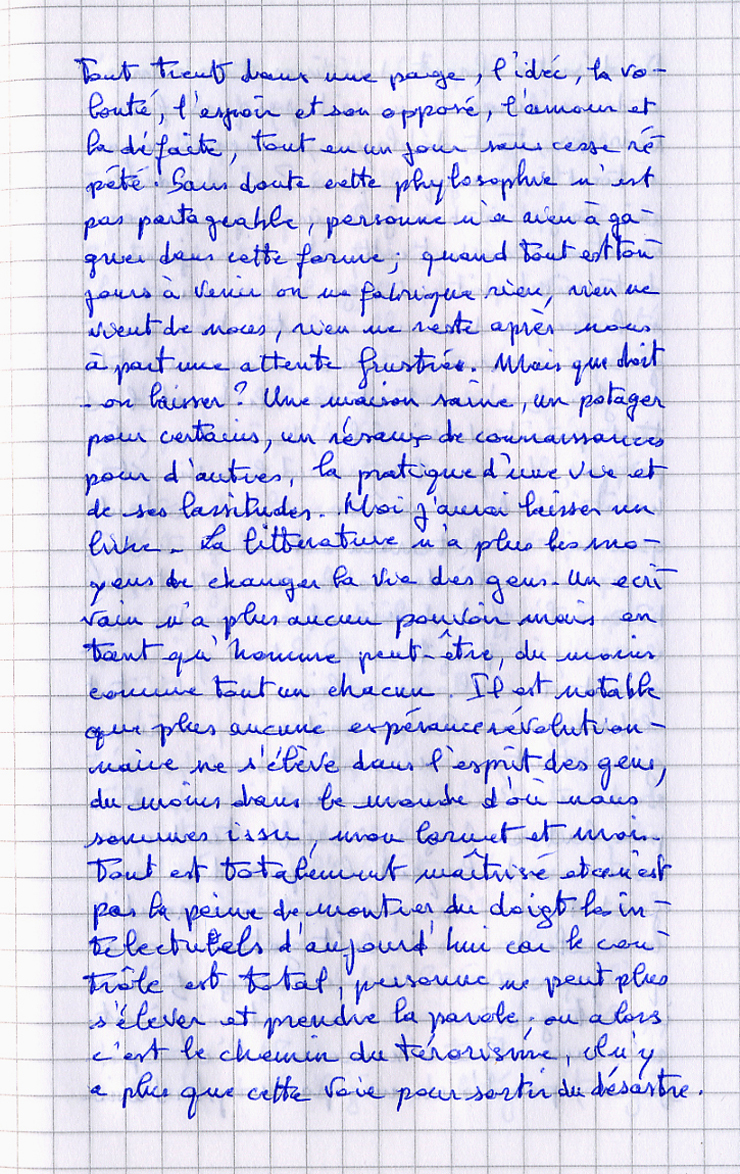 Tout tient dans une page, l'idée, la vo-
lonté, l'espoir et son opposé, l'amour et
la défaite, tout en un jour sans cesse ré
pété. Sans doute cette phylosophie n'est
pas partageable, personne n'a rien à ga-
gner dans cette forme; quand tout est tou
jours à venir on ne fabrique rien, rien ne
vient de nous, rien ne reste après nous
à part une attente frustrée. Mais que doit
-on laisser? Une maison saine, un potager
pour certains, un réseaux de connaissances
pour d'autres, la pratique d'une vie et
de ses lassitudes. Moi j'aurai laisser un
livre. La litterature n'a plus les mo-
yens de changer la vie des gens. Un ecri
vain n'a plus aucun pouvoir mais en
tant qu'homme peut-être, du moins
comme tout un chacun. Il est notable
que plus aucune espérance révolution-
naire ne s'élève dans l'esprit des gens,
du moins dans le monde d'où nous
sommes issu, mon carnet et moi.
Tout est totalement maîtrisé et ce n'est
pas la peine de montrer du doigt les in-
télectuels d'aujourd'hui car le con-
trôle est total, personne ne peut plus
s'élever et prendre la parole, ou alors
c'est le chemin du térorisme, il n'y
a plus que cette voie pour sortir du désastre.